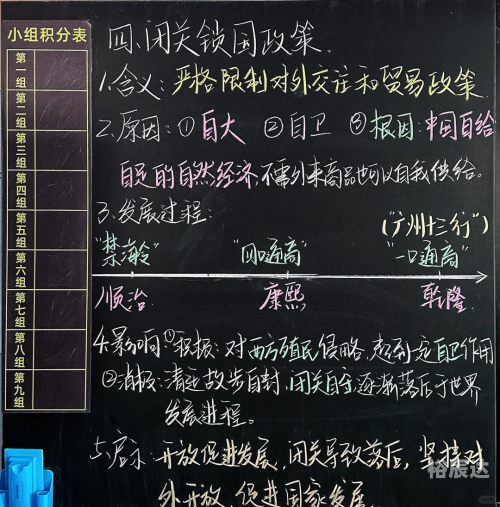 小组积分表
第一组
第二组
第三组
第四组
第五组
第六组
第七组
第八组
第九组
四、闭关锁国政策.
1.含义:严格限制对外交往和贸易政策.
2.原因:①自大 ②自卫 ③根因:中国自给
自足的自然经济,不需外来商品也可以自我供给。
3.发展过程:
("广州十三行")
"禁海令" "四口通商" "一口通商"
顺治 康熙 乾隆
4.影响①积极:对西方殖民侵略,起到一定自卫作用
②消极:清廷故步自封,闭关自守,逐渐落后于世界
发展进程。
5.启示:开放促进发展,闭关导致落后,坚持对
外开放,促进国家发展.
裕宸达